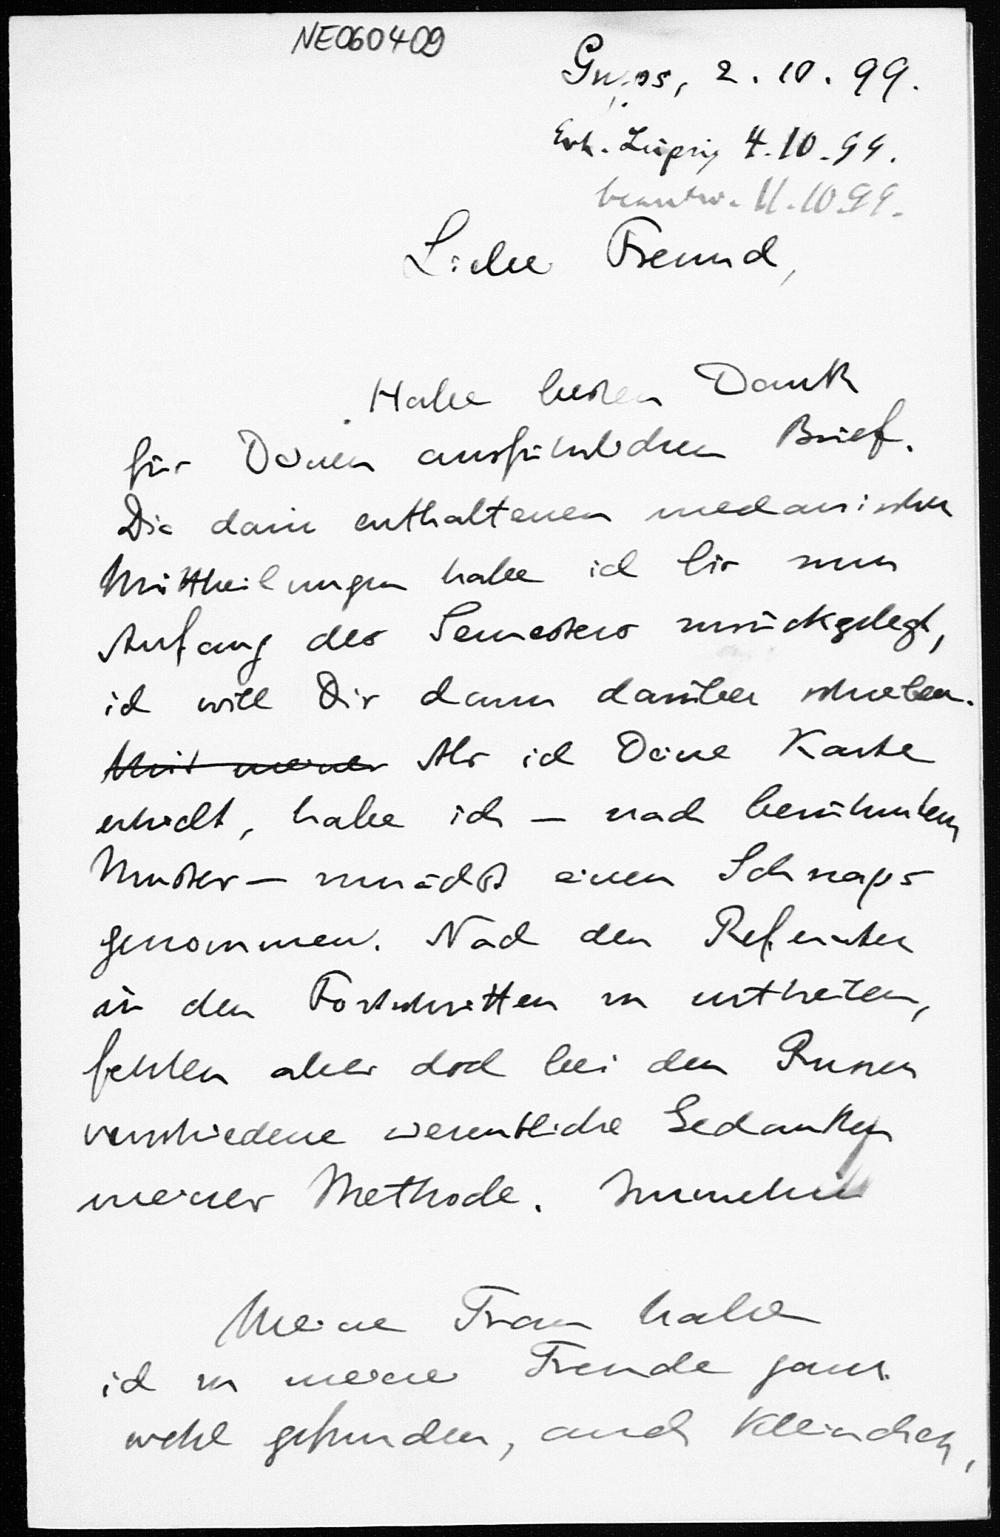 NE060409
2.10.99.
Erh. Leipzig 4.10.99.
beantw. 11.10.99.
Lieber Freund,
Habe besten Dank
für Deinen ausführlichen Brief.
Die darin enthaltenen mechanischen
Mittheilungen habe ich bis zum
Anfang des Semesters zurückgelegt,
ich will Dir dann darüber schreiben.
Mit meiner Als ich Deine Karte
erhielt, habe ich – nach berühmtem
Muster – zunächst einen Schnaps
genommen. Nach den Referaten
in den Fortschritten zu urtheilen,
fehlen aber doch bei den Russen
verschiedene wesentliche Gedanken
meiner Methode. Immerhin
Meine Frau habe
ich zu meiner Freude ganz
wohl gefunden, auch Kleinchen,